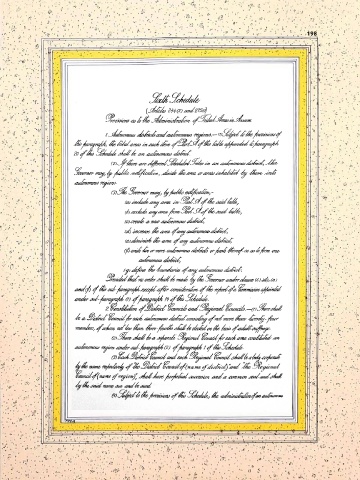 198
Sixth Schedule
(Articles 244(2) and 275(1))
Provisions as to the Administration of Tribal Areas in Assam
1. Autonomous districts and autonomous regions.— (1) Subject to the provisions of
this paragraph, the tribal areas in each item of Part A of the table appended to paragraph
of this Schedule shall be an autonomous district.
(2) If there are different Scheduled Tribes in an autonomous district, the
Governor may, by public notification, divide the area or areas inhabited by them into
autonomous regions.
(3) The Governor may, by public notification,—
(a) include any area in Part A of the said table,
(b) exclude any area from Part A of the said table,
(c) create a new autonomous district,
(d) increase the area of any autonomous district,
(e) diminish the area of any autonomous district,
(f) unite two or more autonomous districts or parts thereof so as to form one
autonomous district,
(g) define the boundaries of any autonomous district:
Provided that no order shall be made by the Governor under clauses (c), (d), (e)
and (f) of this sub-paragraph except after consideration of the report of a Commission appointed
under sub-paragraph (1) of paragraph 14 of this Schedule.
2. Constitution of District Councils and Regional Councils.— (1) There shall
be a District Council for each autonomous district consisting of not more than twenty-four
members, of whom not less than three-fourths shall be elected on the basis of adult suffrage.
(2) There shall be a separate Regional Council for each area constituted an
autonomous region under sub-paragraph (2) of paragraph 1 of this Schedule.
(3) Each District Council and each Regional Council shall be a body corporate
by the name respectively of the District Council of (name of district) and The Regional
Council of (name of region), shall have perpetual succession and a common seal and shall
by the said name sue and be sued.
(4) Subject to the provisions of this Schedule, the administration of an autonomous